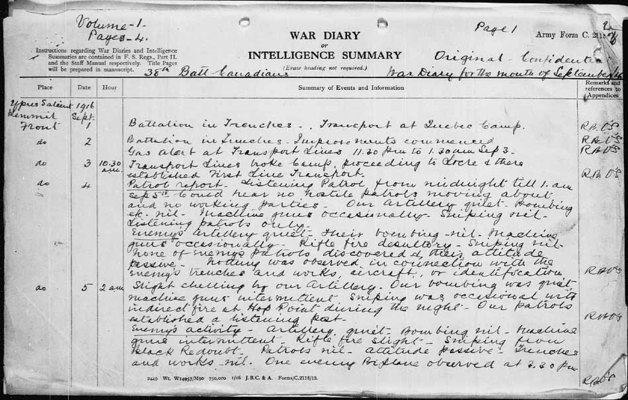 Volume-1.
Pages-4.
Page 1
WAR DIARY
OR
INTELLIGENCE SUMMARY
(Erase heading not required.)
Army Form C. 2118.
Instructions regarding War Diaries and Intelligence
Summaries are contained in F. S. Regs., Part II.
and the Staff Manual respectively. Title Pages
will be prepared in manuscript.
Original Confidential
38th Battn Canadians
War Diary for the month of September
Place Date Hour Summary of Events and Information Remarks and references to Appendices
Ypres Salient 1916
Kemmel Sept.
Front 1 Battalion in Trenches. Transport at Quebec Camp.
do 2 Battalion in Trenches. Improvements commenced
Gas alert at Transport Lines 11.30 pm to 1.30 am Sep 3.
do 3 10.30 am Transport Lines broke Camp, proceeding to Locre & there
established First Line Transport.
do 4 Patrol report. Listening Patrol from midnight till 1. am
Sep 5th. Could hear no hostile patrols moving about
and no working parties. Our Artillery quiet. Bombing
nil. Machine guns occasionally. Sniping nil.
Listening patrols only.
Enemy's Artillery quiet. Their bombing nil. Machine
guns occasionally. Rifle fire desultory. Sniping nil
None of enemy's patrols discovered & their attitude
passive. Nothing was observed in connection with the
enemy's trenches and works, aircraft, or identification.
do 5 2 am Slight shelling by our Artillery. Our bombing was quiet
machine guns intermittent. Sniping was occasional with
indirect fire at Hop Point during the night. Our Patrols
established a listening post.
Enemy's activity. Artillery quiet. Bombing nil. Machine
guns intermittent. Rifle fire slight. Sniping from
Black Redoubt. Patrols nil. Attitude passive. Trenches
and works nil. One enemy Biplane observed at 6.30 pm
2449 Wt. W14957/M90 750,000 1/16 J.B.C. & A. Forms/C.2118/12.